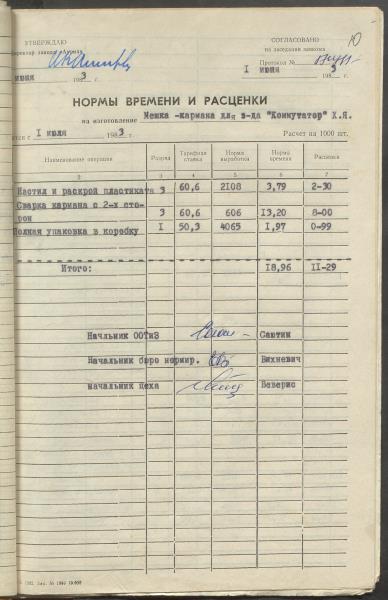 УТВЕРЖДАЮ
СОГЛАСОВАНО
Директор завода
на заседании завкома
Протокол №
июня 1983 г.
I июня 1983 г.
10
НОРМЫ ВРЕМЕНИ И РАСЦЕНКИ
на изготовление Мешка-кармана для з-да "Коммутатор" Х.Я.
I июля 1983 г.
Расчет на 1000 шт.
Наименование операции
Разряд
Тарифная ставка
Норма выработки
Норма времени
Расценка
2 3 4 5 6 7
Настил и раскрой пластиката 3 60,6 2108 3,79 2-30
Сварка кармана с 2-х сто-
рон 3 60,6 606 13,20 8-00
Полная упаковка в коробку I 50,3 4065 1,97 0-99
Итого: 18,96 11-29
Начльник ООТиЗ Саютин
Начальник бюро нормир. Вихневич
начальник цеха Веверис